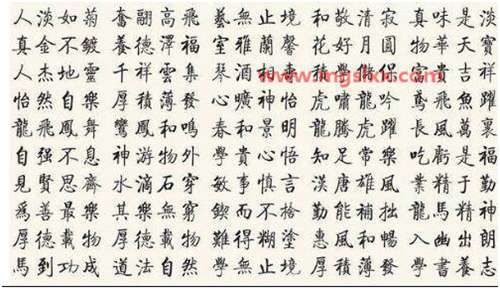 人淡如菊 奮翮高飛 藝無止境 和敬清寂 真味是淡
真金不鍍 養德澤福 室雅蘭馨 花好月圓 物華天寶
人杰地靈 千祥雲集 琴 酒 吉祥
www.mgshxx.com
怡然自樂 厚積薄發 心曠神怡 虎嘯龍吟 鳶飛魚躍
龍飛鳳舞 鸞鳳和鳴 春和景明 龍騰虎躍 長風萬裏
自强不息 神游物外 學貴心悟 知足常樂 吃虧是福
見賢思齊 水滴石穿 敏事慎言 漢唐雄風 業精于勤
為善最樂 其樂無窮 鍥而不捨 勤能補拙 龍馬精神
厚德載物 難得糊塗 惠風和暢 入幽出朗
馬到功成 道法自然 學無止境 厚積薄發 學書養志